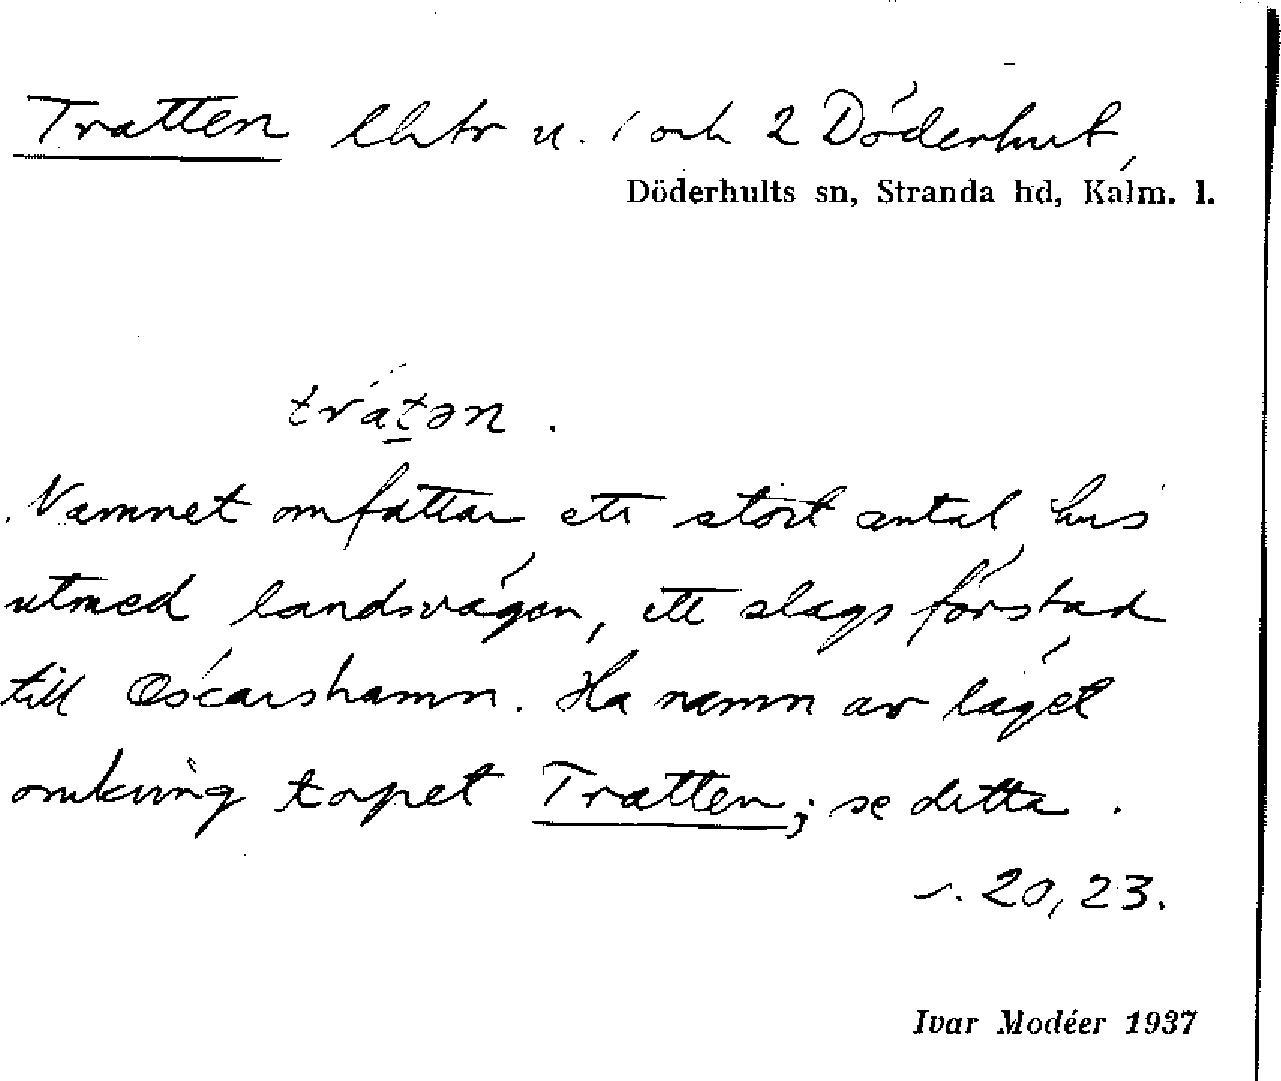 Tratten lhtr u. 1 och 2 Döderhult,
Döderhults sn, Stranda hd, Kalm. l.
trátən.
Namnet omfattar ett stort antal hus
utmed landsvägen, ett slags förstad
till Oscarshamn. Ha namn av läget
omkring torpet Tratten; se detta.
s. 20, 23.
Ivar Modéer 1937